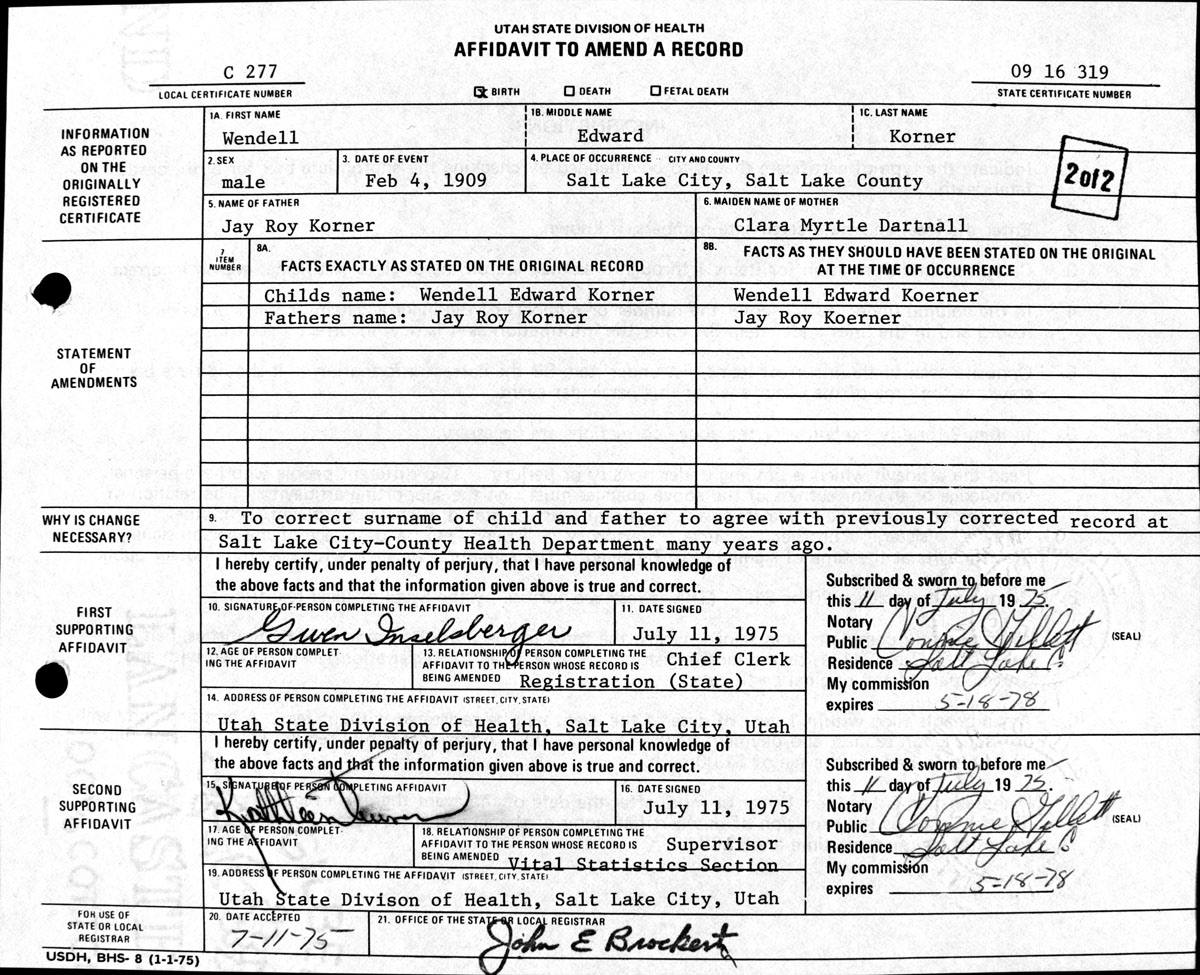 UTAH STATE DIVISION OF HEALTH
AFFIDAVIT TO AMEND A RECORD
C 277
LOCAL CERTIFICATE NUMBER
☒ BIRTH ☐ DEATH ☐ FETAL DEATH
09 16 319
STATE CERTIFICATE NUMBER
INFORMATION
AS REPORTED
ON THE
ORIGINALLY
REGISTERED
CERTIFICATE
1A. FIRST NAME
Wendell
1B. MIDDLE NAME
Edward
1C. LAST NAME
Korner
2. SEX
male
3. DATE OF EVENT
Feb 4, 1909
4. PLACE OF OCCURRENCE CITY AND COUNTY
Salt Lake City, Salt Lake County
2 of 2
5. NAME OF FATHER
Jay Roy Korner
6. MAIDEN NAME OF MOTHER
Clara Myrtle Dartnall
STATEMENT
OF
AMENDMENTS
7
ITEM
NUMBER
8A.
FACTS EXACTLY AS STATED ON THE ORIGINAL RECORD
8B.
FACTS AS THEY SHOULD HAVE BEEN STATED ON THE ORIGINAL
AT THE TIME OF OCCURRENCE
Childs name: Wendell Edward Korner
Wendell Edward Koerner
Fathers name: Jay Roy Korner
Jay Roy Koerner
WHY IS CHANGE
NECESSARY?
9. To correct surname of child and father to agree with previously corrected record at
Salt Lake City-County Health Department many years ago.
FIRST
SUPPORTING
AFFIDAVIT
I hereby certify, under penalty of perjury, that I have personal knowledge of
the above facts and that the information given above is true and correct.
10. SIGNATURE OF PERSON COMPLETING THE AFFIDAVIT
Gwen Inselsberger
11. DATE SIGNED
July 11, 1975
12. AGE OF PERSON COMPLET-
ING THE AFFIDAVIT
13. RELATIONSHIP OF PERSON COMPLETING THE
AFFIDAVIT TO THE PERSON WHOSE RECORD IS
BEING AMENDED
Chief Clerk
Registration (State)
14. ADDRESS OF PERSON COMPLETING THE AFFIDAVIT (STREET, CITY, STATE)
Utah State Division of Health, Salt Lake City, Utah
Subscribed & sworn to before me
this 11 day of July 19 75.
Notary
Public Connie Gillett (SEAL)
Residence Salt Lake C
My commission
expires 5-18-78
SECOND
SUPPORTING
AFFIDAVIT
I hereby certify, under penalty of perjury, that I have personal knowledge of
the above facts and that the information given above is true and correct.
15. SIGNATURE OF PERSON COMPLETING AFFIDAVIT
Kathleen
16. DATE SIGNED
July 11, 1975
17. AGE OF PERSON COMPLET-
ING THE AFFIDAVIT
18. RELATIONSHIP OF PERSON COMPLETING THE
AFFIDAVIT TO THE PERSON WHOSE RECORD IS
BEING AMENDED
Supervisor
Vital Statistics Section
19. ADDRESS OF PERSON COMPLETING THE AFFIDAVIT (STREET, CITY, STATE)
Utah State Divison of Health, Salt Lake City, Utah
Subscribed & sworn to before me
this 11 day of July 19 75.
Notary
Public Connie Gillett (SEAL)
Residence Salt Lake C
My commission
expires 5-18-78
FOR USE OF
STATE OR LOCAL
REGISTRAR
20. DATE ACCEPTED
7-11-75
21. OFFICE OF THE STATE OR LOCAL REGISTRAR
John E Brockert
USDH, BHS- 8 (1-1-75)